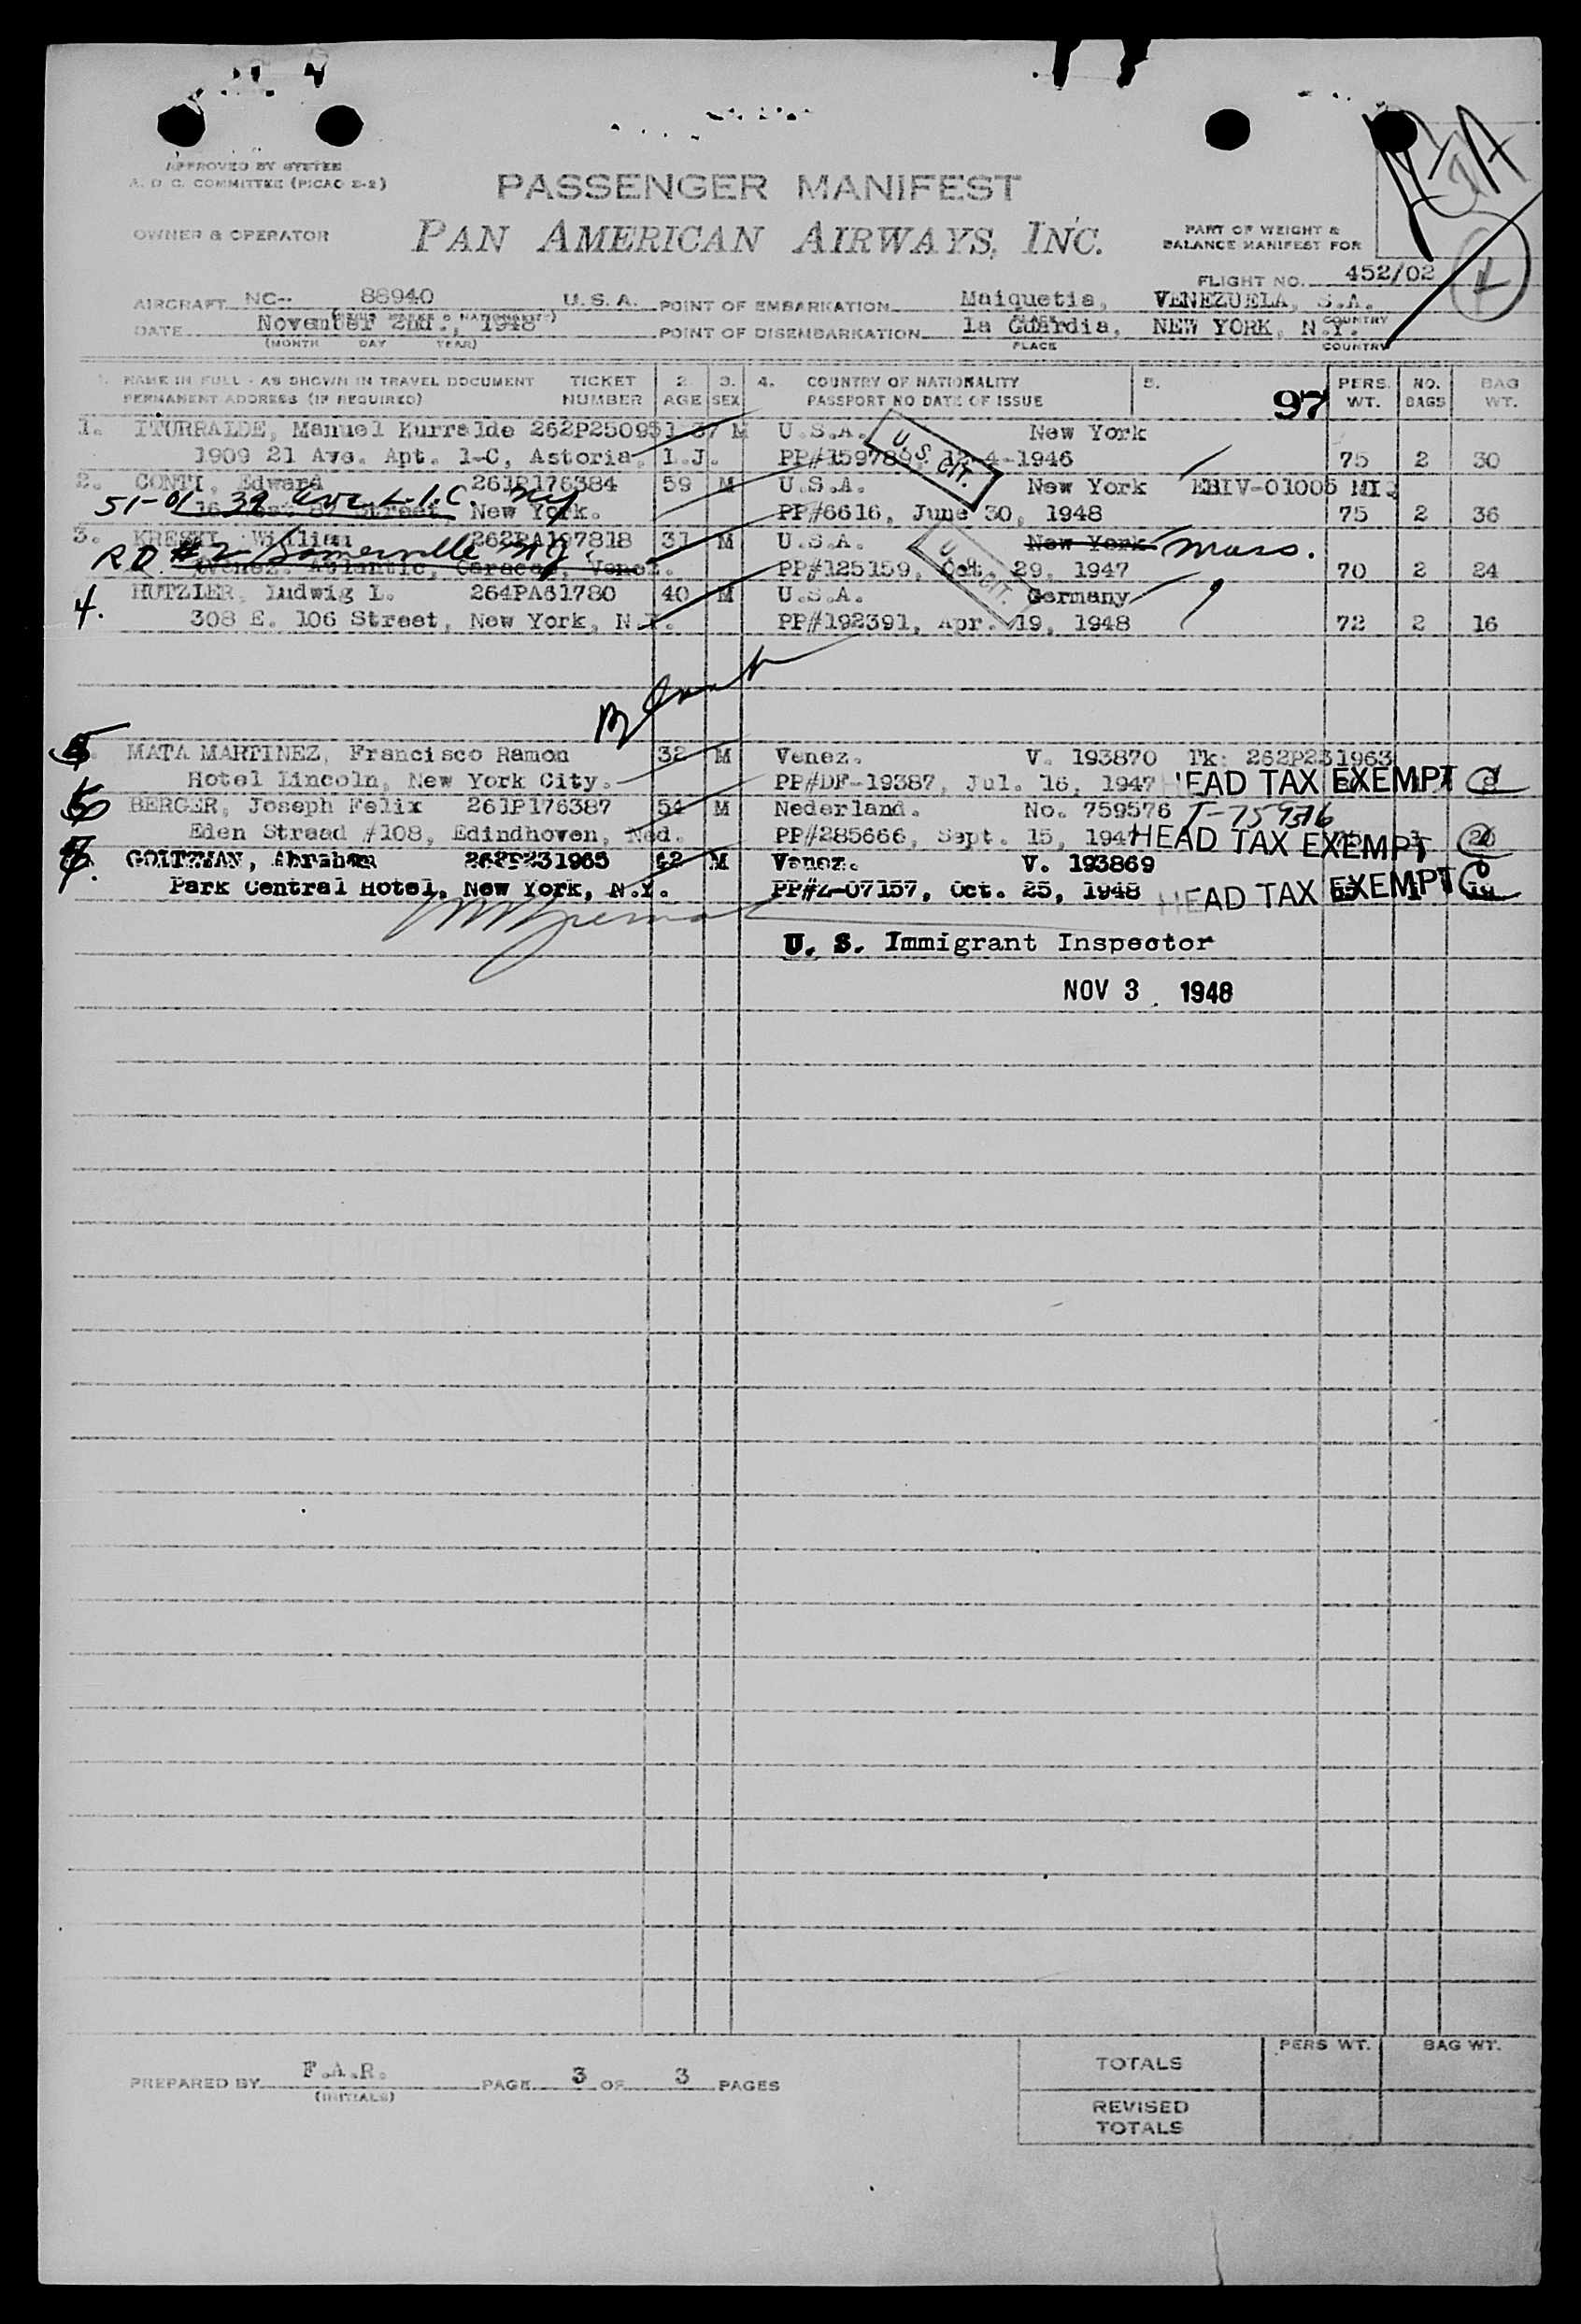 APPROVED BY SYSTEM
A. O. C. COMMITTEE (PICAO E-2)
PASSENGER MANIFEST
OWNER & OPERATOR
PAN AMERICAN AIRWAYS, INC.
PART OF WEIGHT &
BALANCE MANIFEST FOR
FLIGHT NO. 452/02
AIRCRAFT NC-- 88940 U.S.A. POINT OF EMBARKATION Maiquetia, VENEZUELA, S.A.
PLACE COUNTRY
DATE November 2nd., 1948 POINT OF DISEMBARKATION la Guardia, NEW YORK, N.Y.
(MONTH DAY YEAR) PLACE COUNTRY
1. NAME IN FULL - AS SHOWN IN TRAVEL DOCUMENT TICKET 2. 3. 4. COUNTRY OF NATIONALITY 5. PERS. NO. BAG
PERMANENT ADDRESS (IF REQUIRED) NUMBER AGE SEX PASSPORT NO DATE OF ISSUE 97 WT. BAGS WT.
1. ITURRALDE, Manuel Kurralde 262P250951 37 M U.S.A. New York
1909 21 Ave. Apt. 1-C, Astoria, L.I. PP#159789, 12-4-1946 75 2 30
U.S. CIT.
2. CONTI, Edward 261P176384 59 M U.S.A. New York
51-01 39 Ave. L.I.C. NY
Street, New York. PP#6616, June 30, 1948 75 2 36
3. KRESKI, William 262PA197818 31 M U.S.A. New York Mass.
R.D. #2 Somerville N.J.
Atlantic, Caracas, Venez. PP#125159, Oct. 29, 1947 70 2 24
U.S. CIT.
4. HUTZLER, Ludwig L. 264PA61780 40 M U.S.A. Germany
308 E. 106 Street, New York, N.Y. PP#192391, Apr. 19, 1948 72 2 16
Blank
5. MATA MARTINEZ, Francisco Ramon 32 M Venez. V. 193870 Tk: 262P231963
Hotel Lincoln, New York City. PP#DF-19387, Jul. 16, 1947 HEAD TAX EXEMPT
6. BERGER, Joseph Felix 261P176387 54 M Nederland. No. 759576 T-759576
Eden Straad #108, Edindhoven, Ned. PP#285666, Sept. 15, 1947 HEAD TAX EXEMPT
7. GOLTZMAN, Abraham 262P231965 42 M Venez. V. 193869
Park Central Hotel, New York, N.Y. PP#Z-07157, Oct. 25, 1948 HEAD TAX EXEMPT
U. S. Immigrant Inspector
NOV 3 1948
PREPARED BY F.A.R. PAGE 3 OF 3 PAGES
(INITIALS)
PERS WT. BAG WT.
TOTALS
REVISED
TOTALS